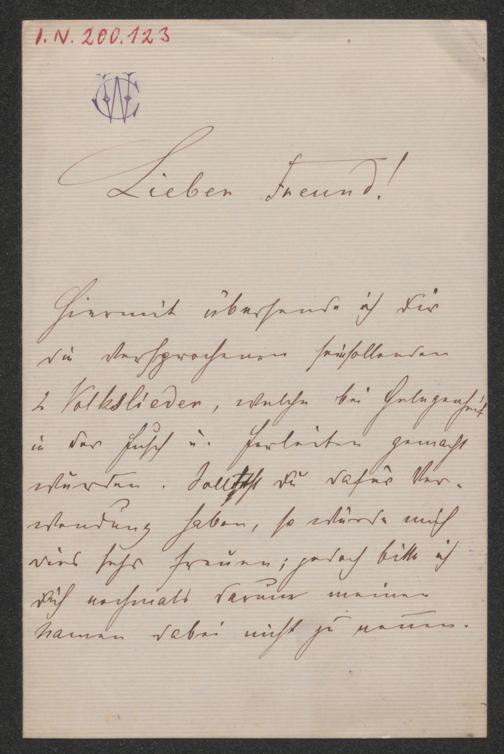 I.N. 200.123
Lieber Freund!
Hiermit übersende ich Dir
die versprochenen seinsollenden
2 Volkslieder, welche bei Gelegenheit
in der Fusch u. Ferleiten gemacht
wurden. Solltest Du dafür Ver-
wendung haben, so würde mich
dies sehr freuen; jedoch bitte ich
Dich nochmals darum meinen
Namen dabei nicht zu nennen.